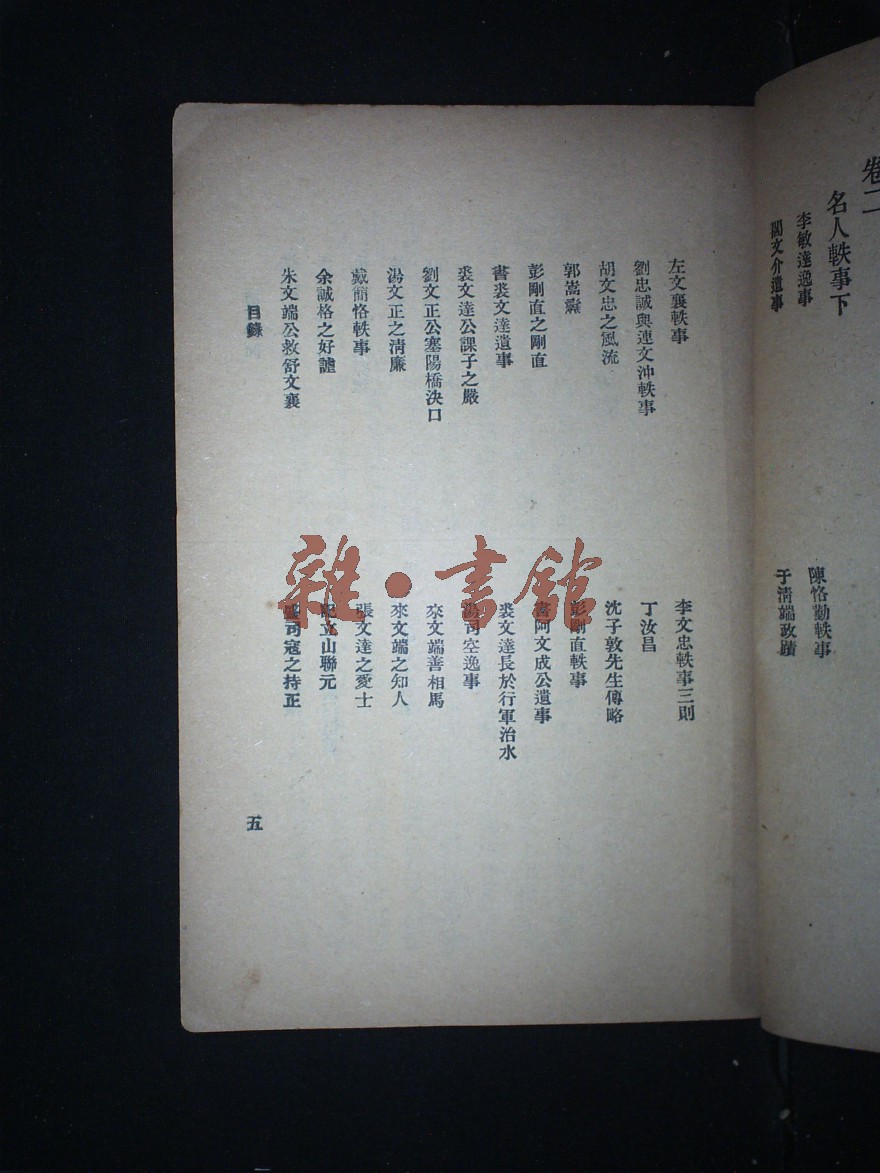 卷二
名人軼事下
李敏達逸事
陳恪勤軼事
閻文介遺事
于清端政蹟
左文襄軼事
李文忠軼事三則
劉忠誠與連文沖軼事
丁汝昌
胡文忠之風流
沈子敦先生傳略
郭嵩燾
彭剛直軼事
彭剛直之剛直
書阿文成公遺事
書裘文達遺事
裘文達長於行軍治水
裘文達公課子之嚴
湯司空逸事
劉文正公塞陽橋決口
來文端善相馬
湯文正之清廉
來文端之知人
戴簡恪軼事
張文達之愛士
余誠格之好謔
記立山聯元
朱文端公救舒文襄
司寇之持正
目錄
五
雜·書館